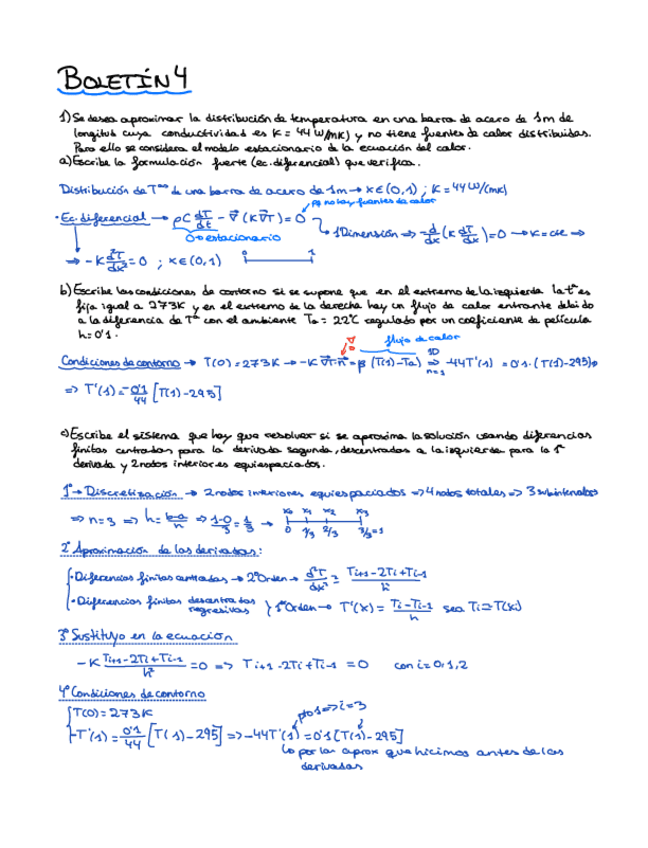 BOLETÍN 4
1) Se desea aproximar la distribución de temperatura en una barra de acero de 1m de
longitud cuya conductividad es K = 44 W/(mK) y no tiene fuentes de calor distribuidas.
Para ello se considera el modelo estacionario de la ecuación del calor.
a) Escribe la formulación fuerte (ec. diferencial) que verifica.
Distribución de Tª de una barra de acero de 1m → x∈(0,1) ; K = 44 W/(mK)
pq no hay fuentes de calor
· Ec. diferencial → ρC dT/dt − ∇(K∇T) = 0
0 → estacionario
1 Dimensión => −d/dx (K dT/dx) = 0 → K = cte =>
=> −K d²T/dx² = 0 ; x∈(0,1) 0 1
b) Escribe las condiciones de contorno si se supone que en el extremo de la izquierda la tª es
fija igual a 273K y en el extremo de la derecha hay un flujo de calor entrante debido
a la diferencia de Tª con el ambiente Ta = 22ºC regulado por un coeficiente de película
h = 0'1.
flujo de calor
Condiciones de contorno → T(0) = 273K → −K ∇T·n = β (T(1) − Ta) 1D => n=1 −44T'(1) = 0'1·(T(1)−295)
=> T'(1) = −0'1/44 [T(1) − 295]
c) Escribe el sistema que hay que resolver si se aproxima la solución usando diferencias
finitas centradas para la derivada segunda, descentradas a la izquierda para la 1ª
derivada y 2 nodos interiores equiespaciados.
1º → Discretización → 2 nodos interiores equiespaciados => 4 nodos totales => 3 subintervalos
=> n = 3 => h = b−a/n => 1−0/3 = 1/3 → x0 x1 x2 x3
0 1/3 2/3 3/3=1
2º Aproximación de las derivadas:
· Diferencias finitas centradas → 2º Orden → d²T/dx² = Ti+1 − 2Ti + Ti−1 / h²
· Diferencias finitas descentradas regresivas } 1º Orden → T'(x) = Ti − Ti−1 / h sea Ti ≃ T(xi)
3º Sustituyo en la ecuación
−K Ti+1 − 2Ti + Ti−1 / h² = 0 => Ti+1 − 2Ti + Ti−1 = 0 con i = 0, 1, 2
4º Condiciones de contorno
T(0) = 273K
pto 1 => i=3
−T'(1) = 0'1/44 [T(1) − 295] => −44T'(1) = 0'1 [T(1) − 295]
↳ por las aprox que hicimos antes de las
derivadas